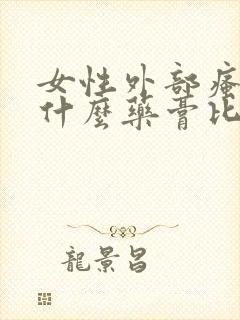 女性外部瘙
什麼藥膏比
龍景昌